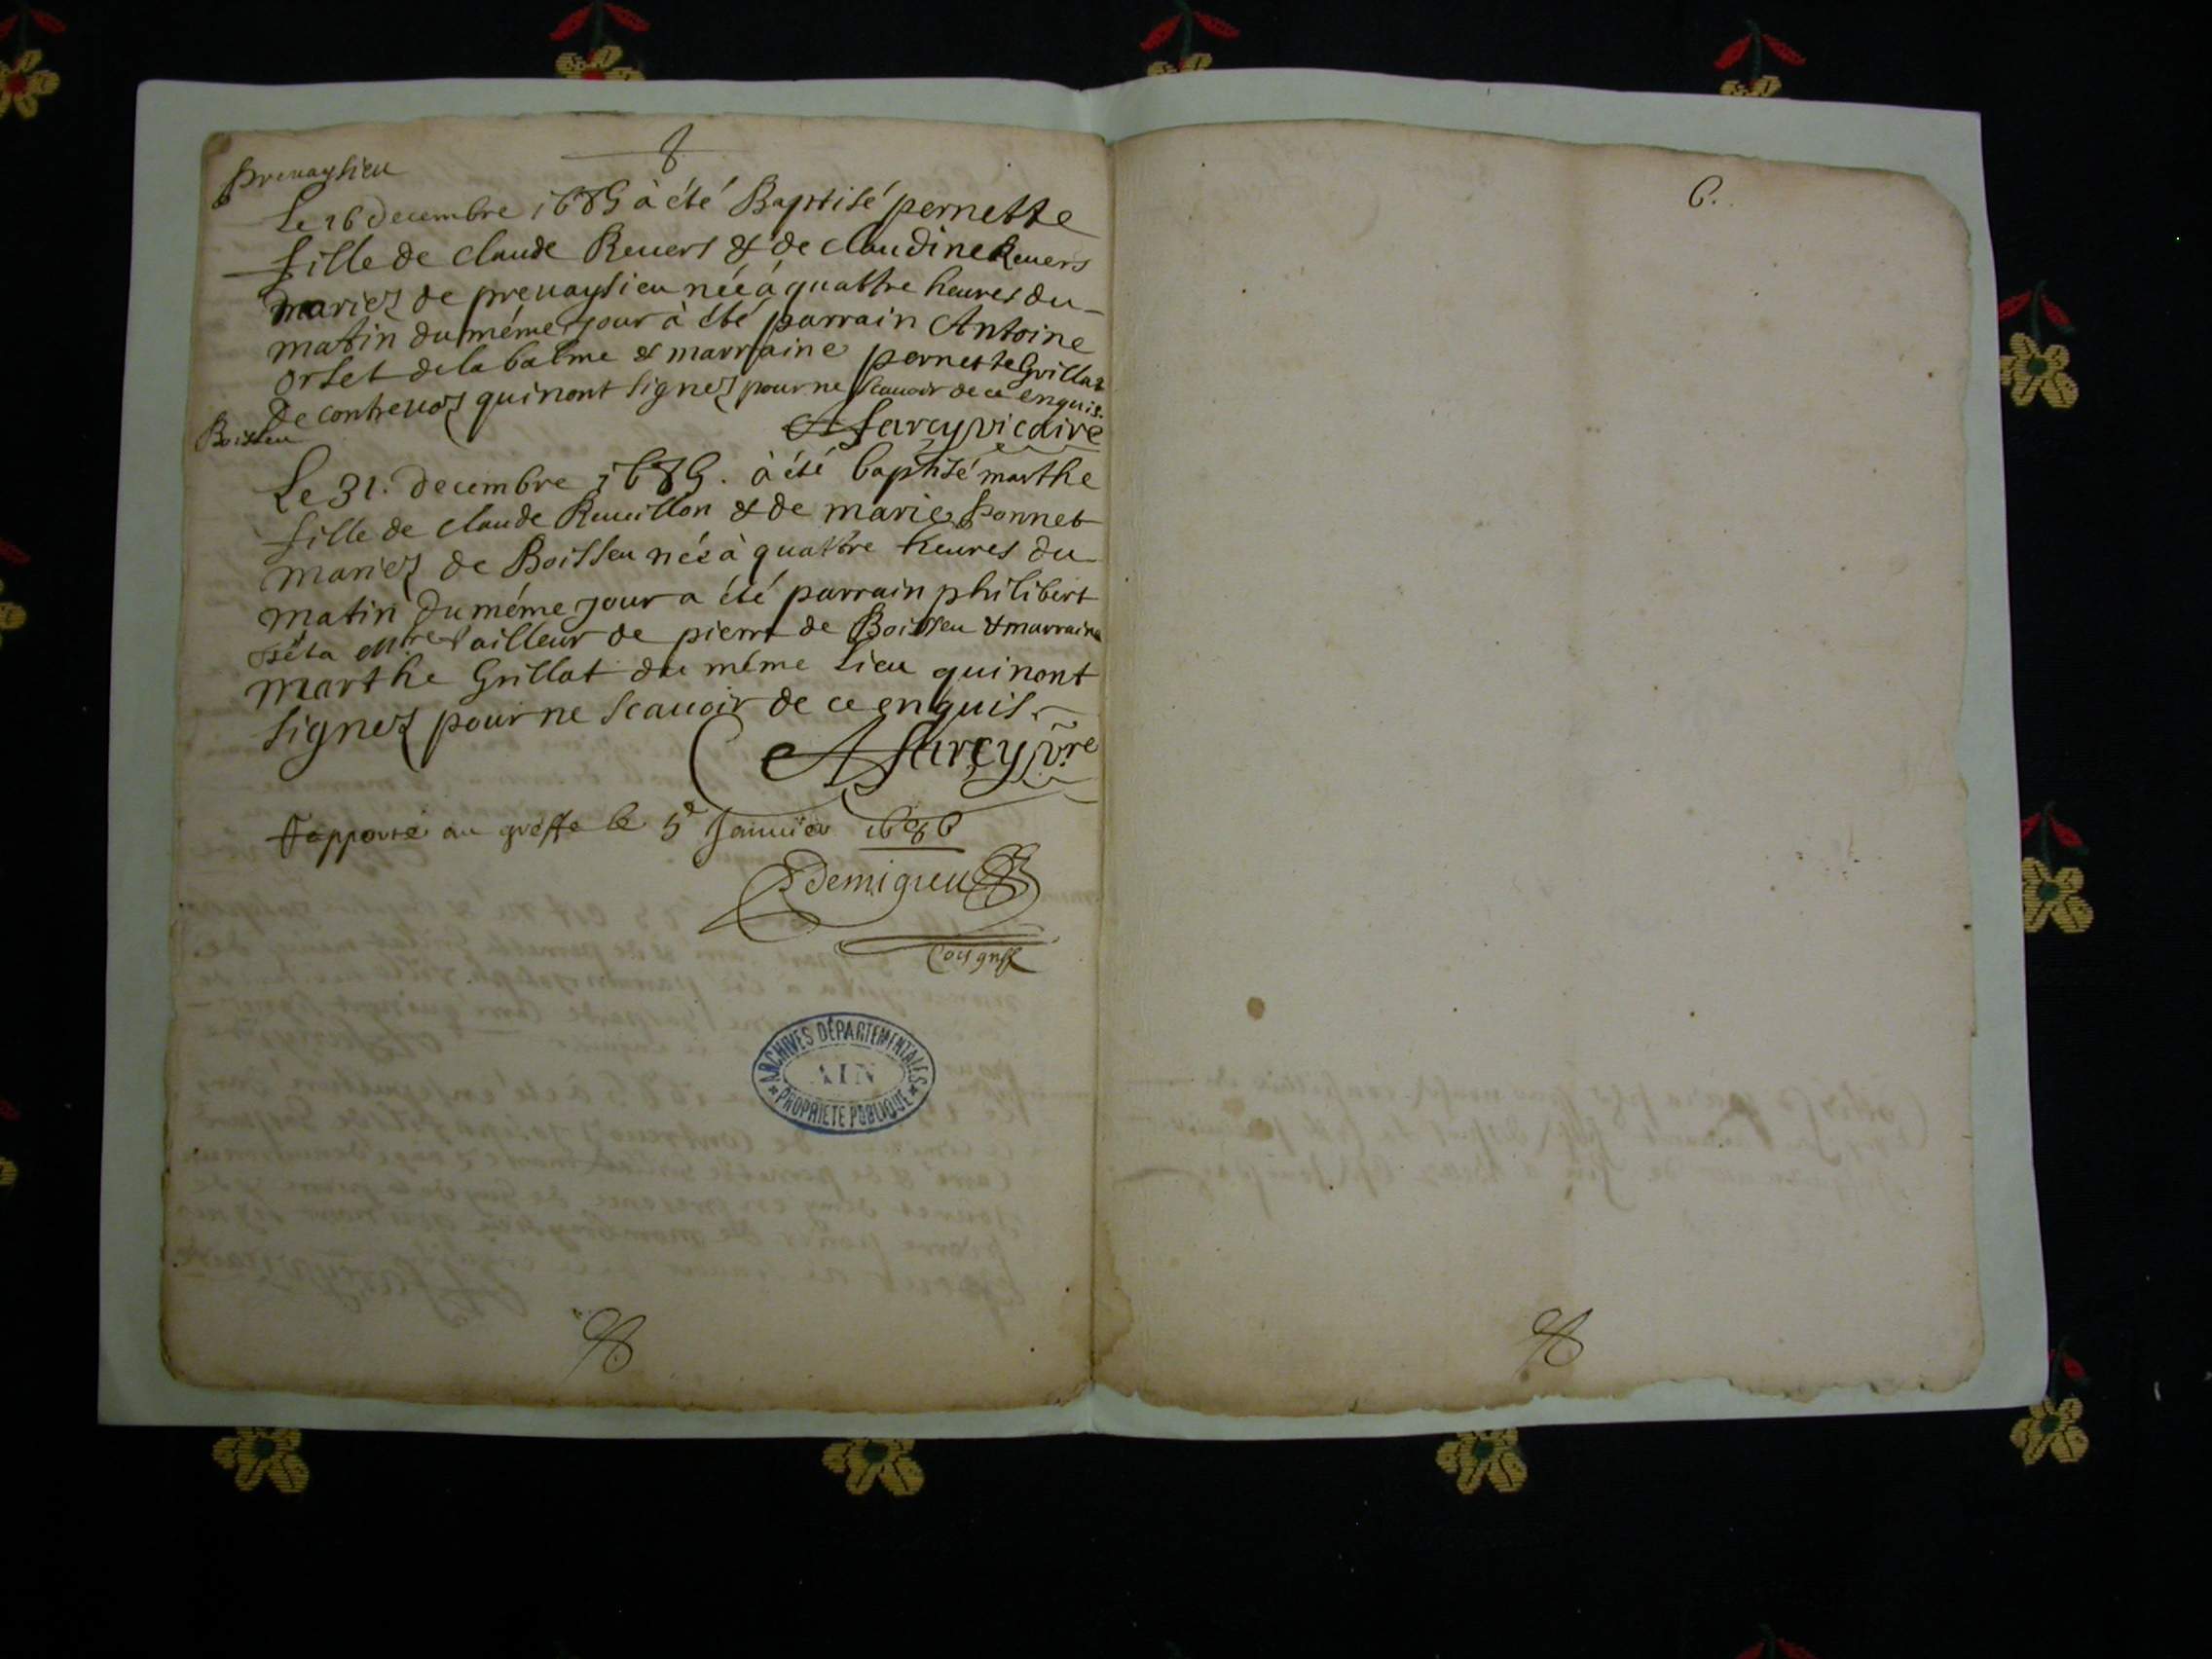 prenaysieu
Le 16 decembre 1685 à été Baptisé pernette
fille de claude Reuers & de claudine Reuers
mariez de preuaysieu née à quattre heures du
matin du méme jour à été parrain Antoine
orset de la balme & marraine pernette Grillat
de contreuoz qui nont signez pour ne scauoir de ce enquis.
A Sarcy vicaire
Boisseu
Le 31. decembre 1685. à été baptisé marthe
fille de claude Reueillon & de marie ponnet
mariez de Boisseu née à quattre heures du
matin du méme jour a été parrain philibert
Mre tailleur de pierre de Boisseu & marraine
marthe Grillat du méme lieu qui nont
signez pour ne scauoir de ce enquis
A Sarcy vre
Rapporté au greffe le 5e Januier 1686
Demigieu
ARCHIVES DÉPARTEMENTALES
AIN
PROPRIÉTÉ PUBLIQUE
6.